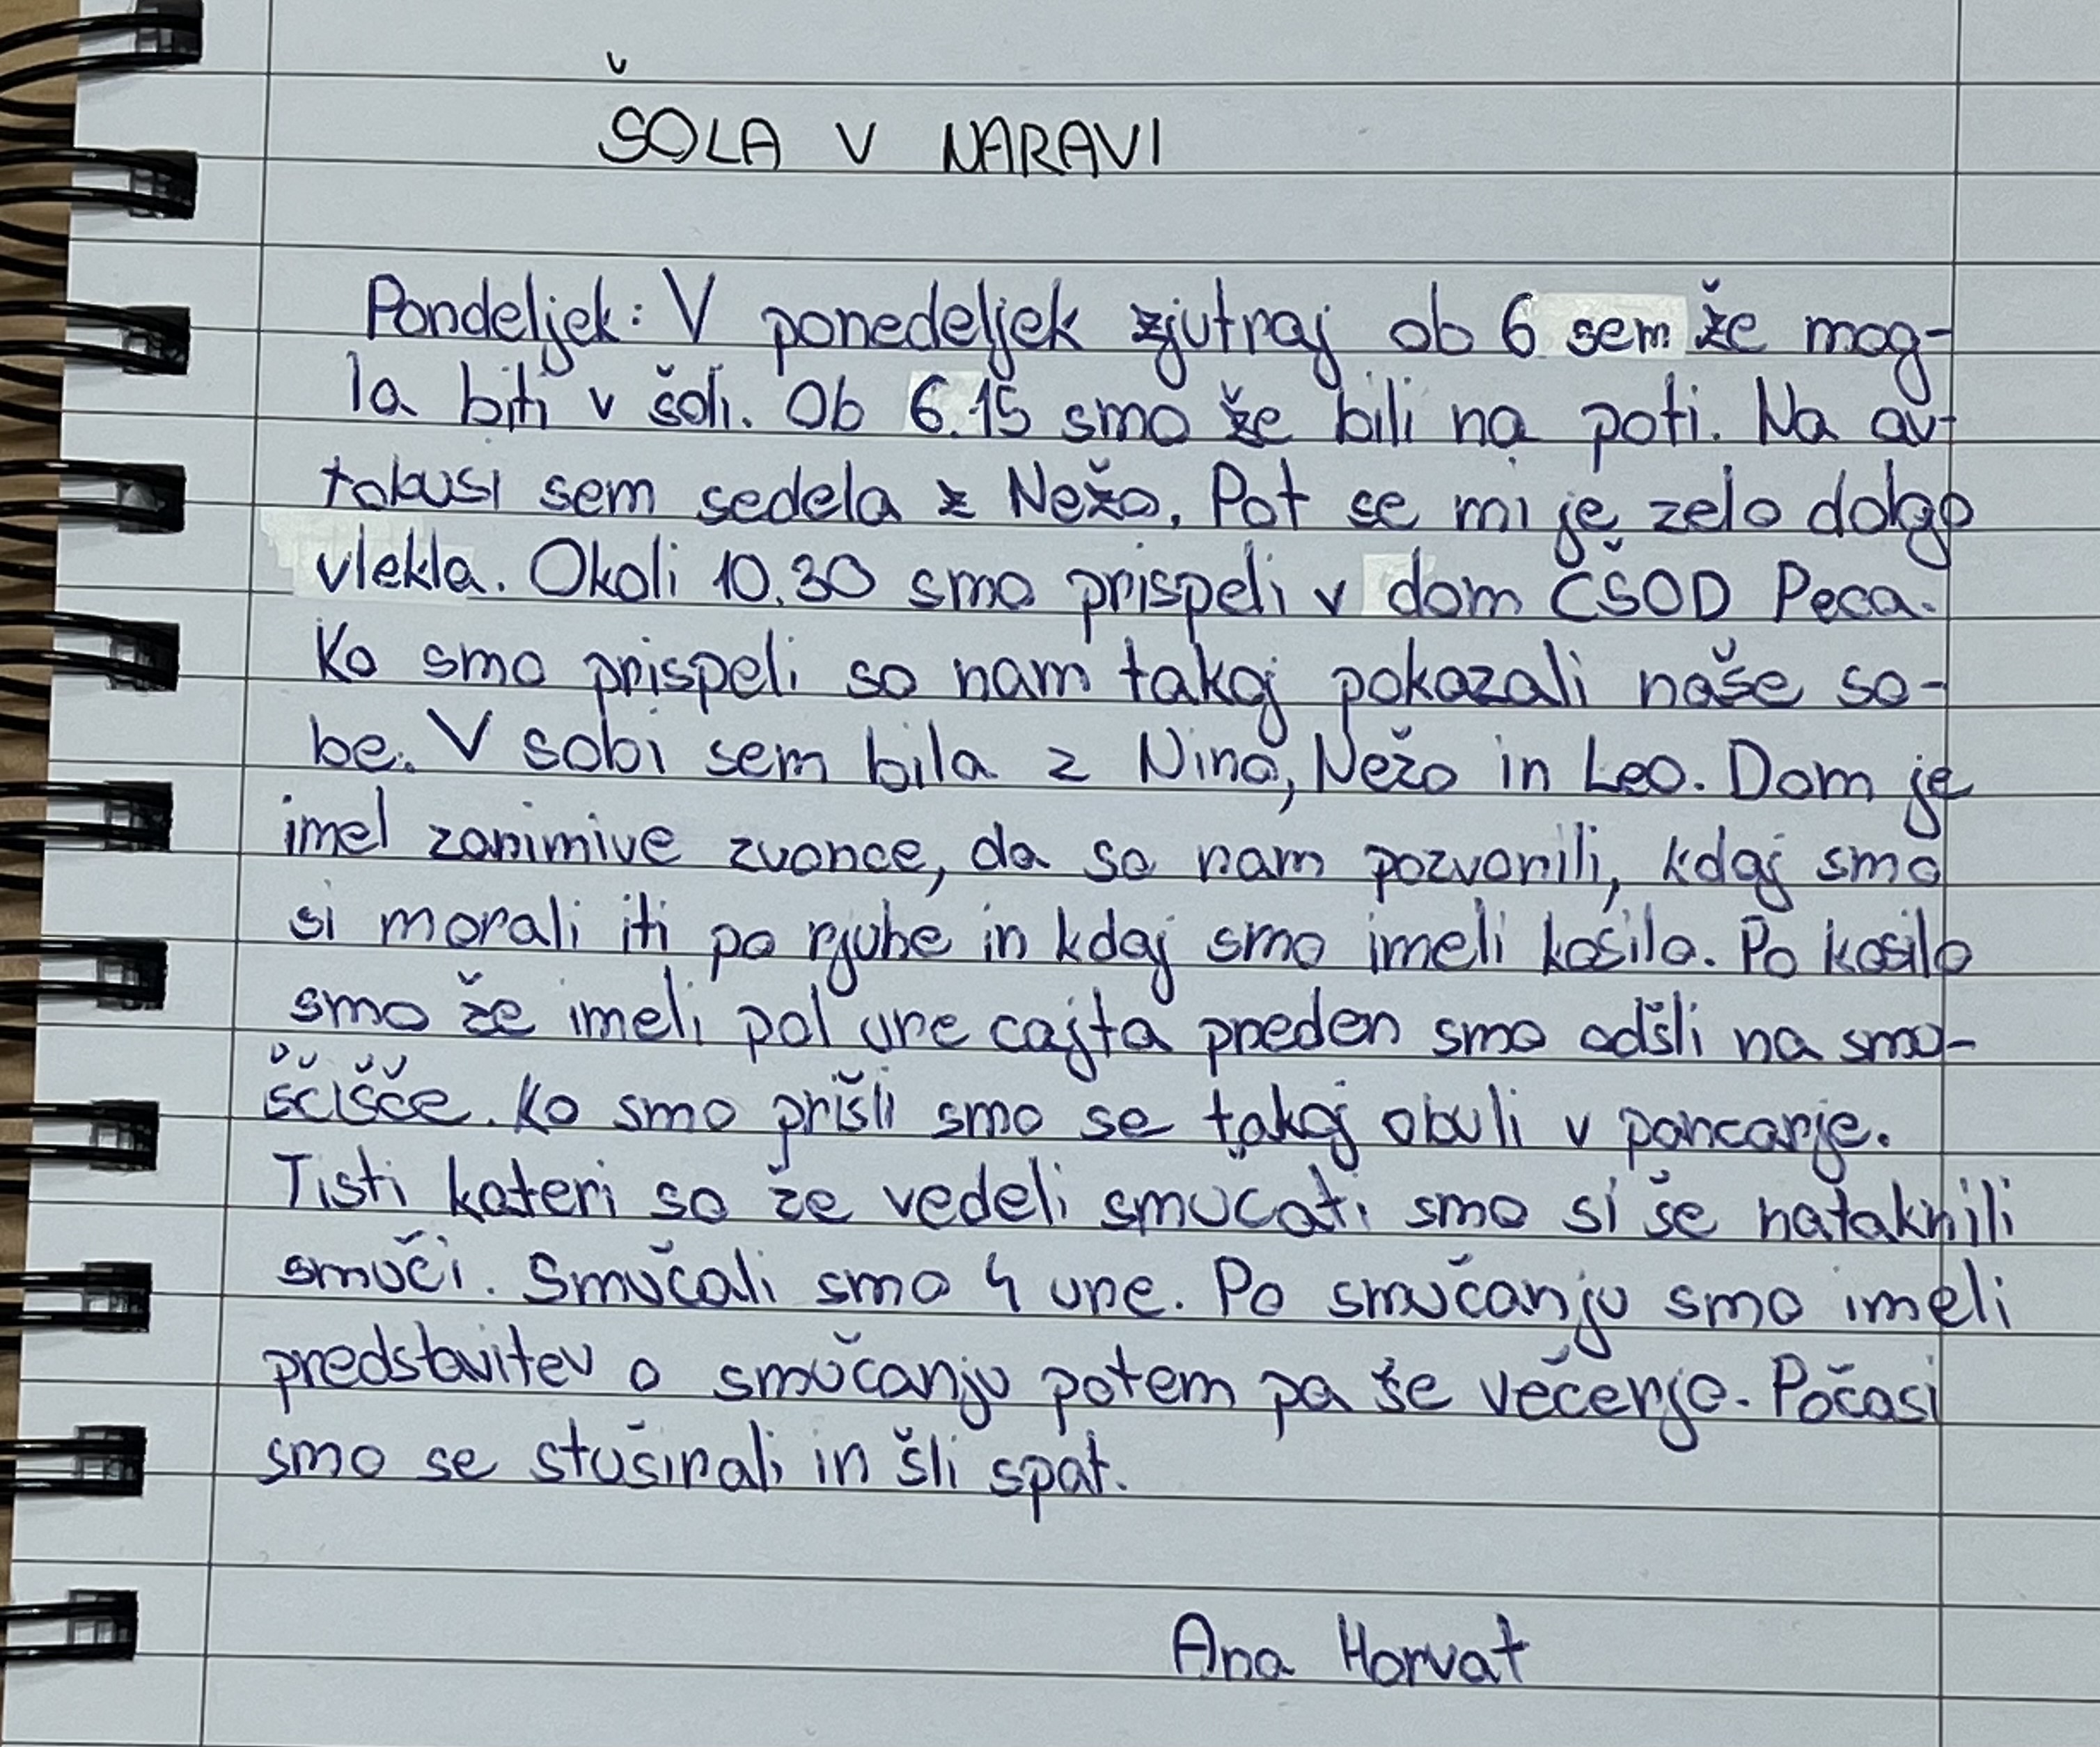 ŠOLA V NARAVI
Pondeljek: V ponedeljek zjutraj ob 6 sem že mog-
la biti v šoli. Ob 6.15 smo že bili na poti. Na av-
tobusi sem sedela z Nežo. Pot se mi je zelo dolgo
vlekla. Okoli 10.30 smo prispeli v dom ČŠOD Peca.
Ko smo prispeli so nam takoj pokazali naše so-
be. V sobi sem bila z Nino, Nežo in Leo. Dom je
imel zanimive zvonce, da so nam pozvonili, kdaj smo
si morali iti po rjuhe in kdaj smo imeli kosilo. Po kosilo
smo že imeli pol ure cajta preden smo odšli na smu-
ščišče. Ko smo prišli smo se takoj obuli v pancarje.
Tisti kateri so že vedeli smučati smo si še nataknili
smuči. Smučali smo 4 ure. Po smučanju smo imeli
predstavitev o smučanju potem pa še večerjo. Počasi
smo se stuširali in šli spat.
Ana Horvat